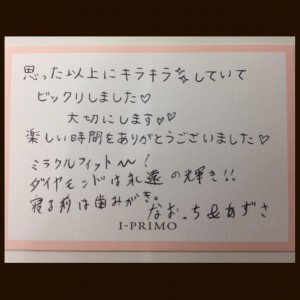 思った以上にキラキラしていて
ビックリしました♡
大切にします♡♡
楽しい時間をありがとうございました♡
ミラクルフィット〜!
ダイヤモンドは永遠の輝き!!
寝る前は歯みがき。
なおっち&あずさ
I-PRIMO